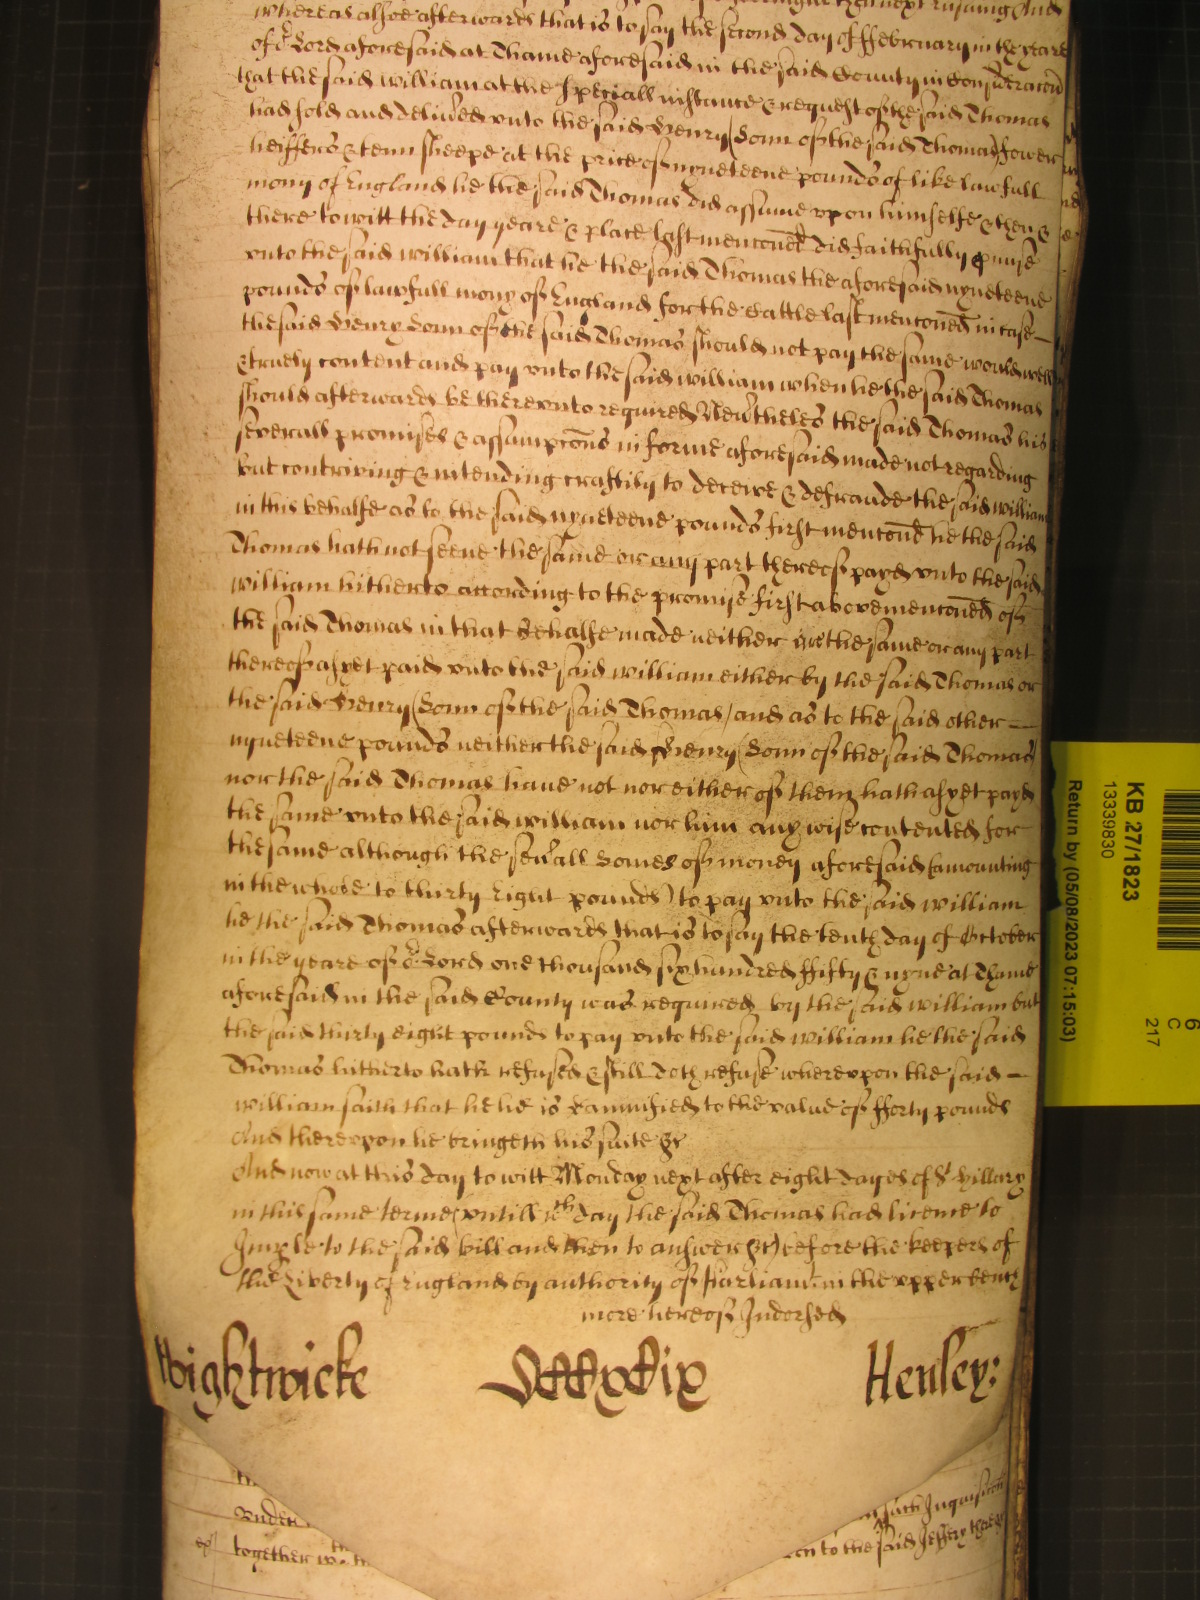 whereas alsoe afterwards that is to say the second day of ffebruary in the yeare
of or Lord aforesaid at Thame aforesaid in the said County in consideracon
that the said William at the speciall instance & request of the said Thomas
had sold and delivered unto the said Henry (Sonn of the said Thomas) fower
heiffers & tenn sheepe at the price of nyneteene pounds of like lawfull
mony of England he the said Thomas did assume upon himselfe & then &
there to witt the day yeare & place last menconed did faithfully pmise
unto the said William that he the said Thomas the aforesaid nyneteene
pounds of lawfull mony of England for the Cattle last menconed in case
the said Henry Sonn of the said Thomas should not pay the same would well
& truely content and pay unto the said William when he the said Thomas
should afterwards be thereunto required Nevertheles the said Thomas his
severall promises & assumpcons in forme aforesaid made not regarding
but contriving & intending craftily to deceive & defraude the said William
in this behalfe as to the said nyneteene pounds first menconed he the said
Thomas hath not seene the same or any part thereof payd unto the said
William hitherto according to the promise first abovemenconed of
the said Thomas in that behalfe made neither is the same or any part
thereof as yet paid unto the said William either by the said Thomas or
the said Henry (Sonn of the said Thomas) and as to the said other
nyneteene pounds neither the said Henry (Sonn of the said Thomas)
nor the said Thomas have not nor either of them hath as yet payd
the same unto the said William nor him any wise contented for
the same although the sevall Somes of money aforesaid (amounting
in the whole to thirty Eight pounds) to pay unto the said William
he the said Thomas afterwards that is to say the tenth day of October
in the yeare of or Lord one thousand six hundred ffifty & nyne at Thame
aforesaid in the said County was required by the said William but
the said thirty eight pounds to pay unto the said William he the said
Thomas hitherto hath refused & still doth refuse whereupon the said
William saith that he is damnified to the value of fforty pounds
And thereupon he bringeth his suite &c
And now at this day to witt Monday next after eight dayes of St Hillary
in this same terme (untill wch day the said Thomas had licence to
Imple to the said bill and then to answer &c) before the keepers of
the Liberty of England by authority of Parliamt in the upper bench
more hereof Indorsed
Wightwicke
Henley:
together
such Inquisicon
to the said Jeffery
KB 27/1823
13339830
Return by (05/08/2023 07:15:03)
6
C
217